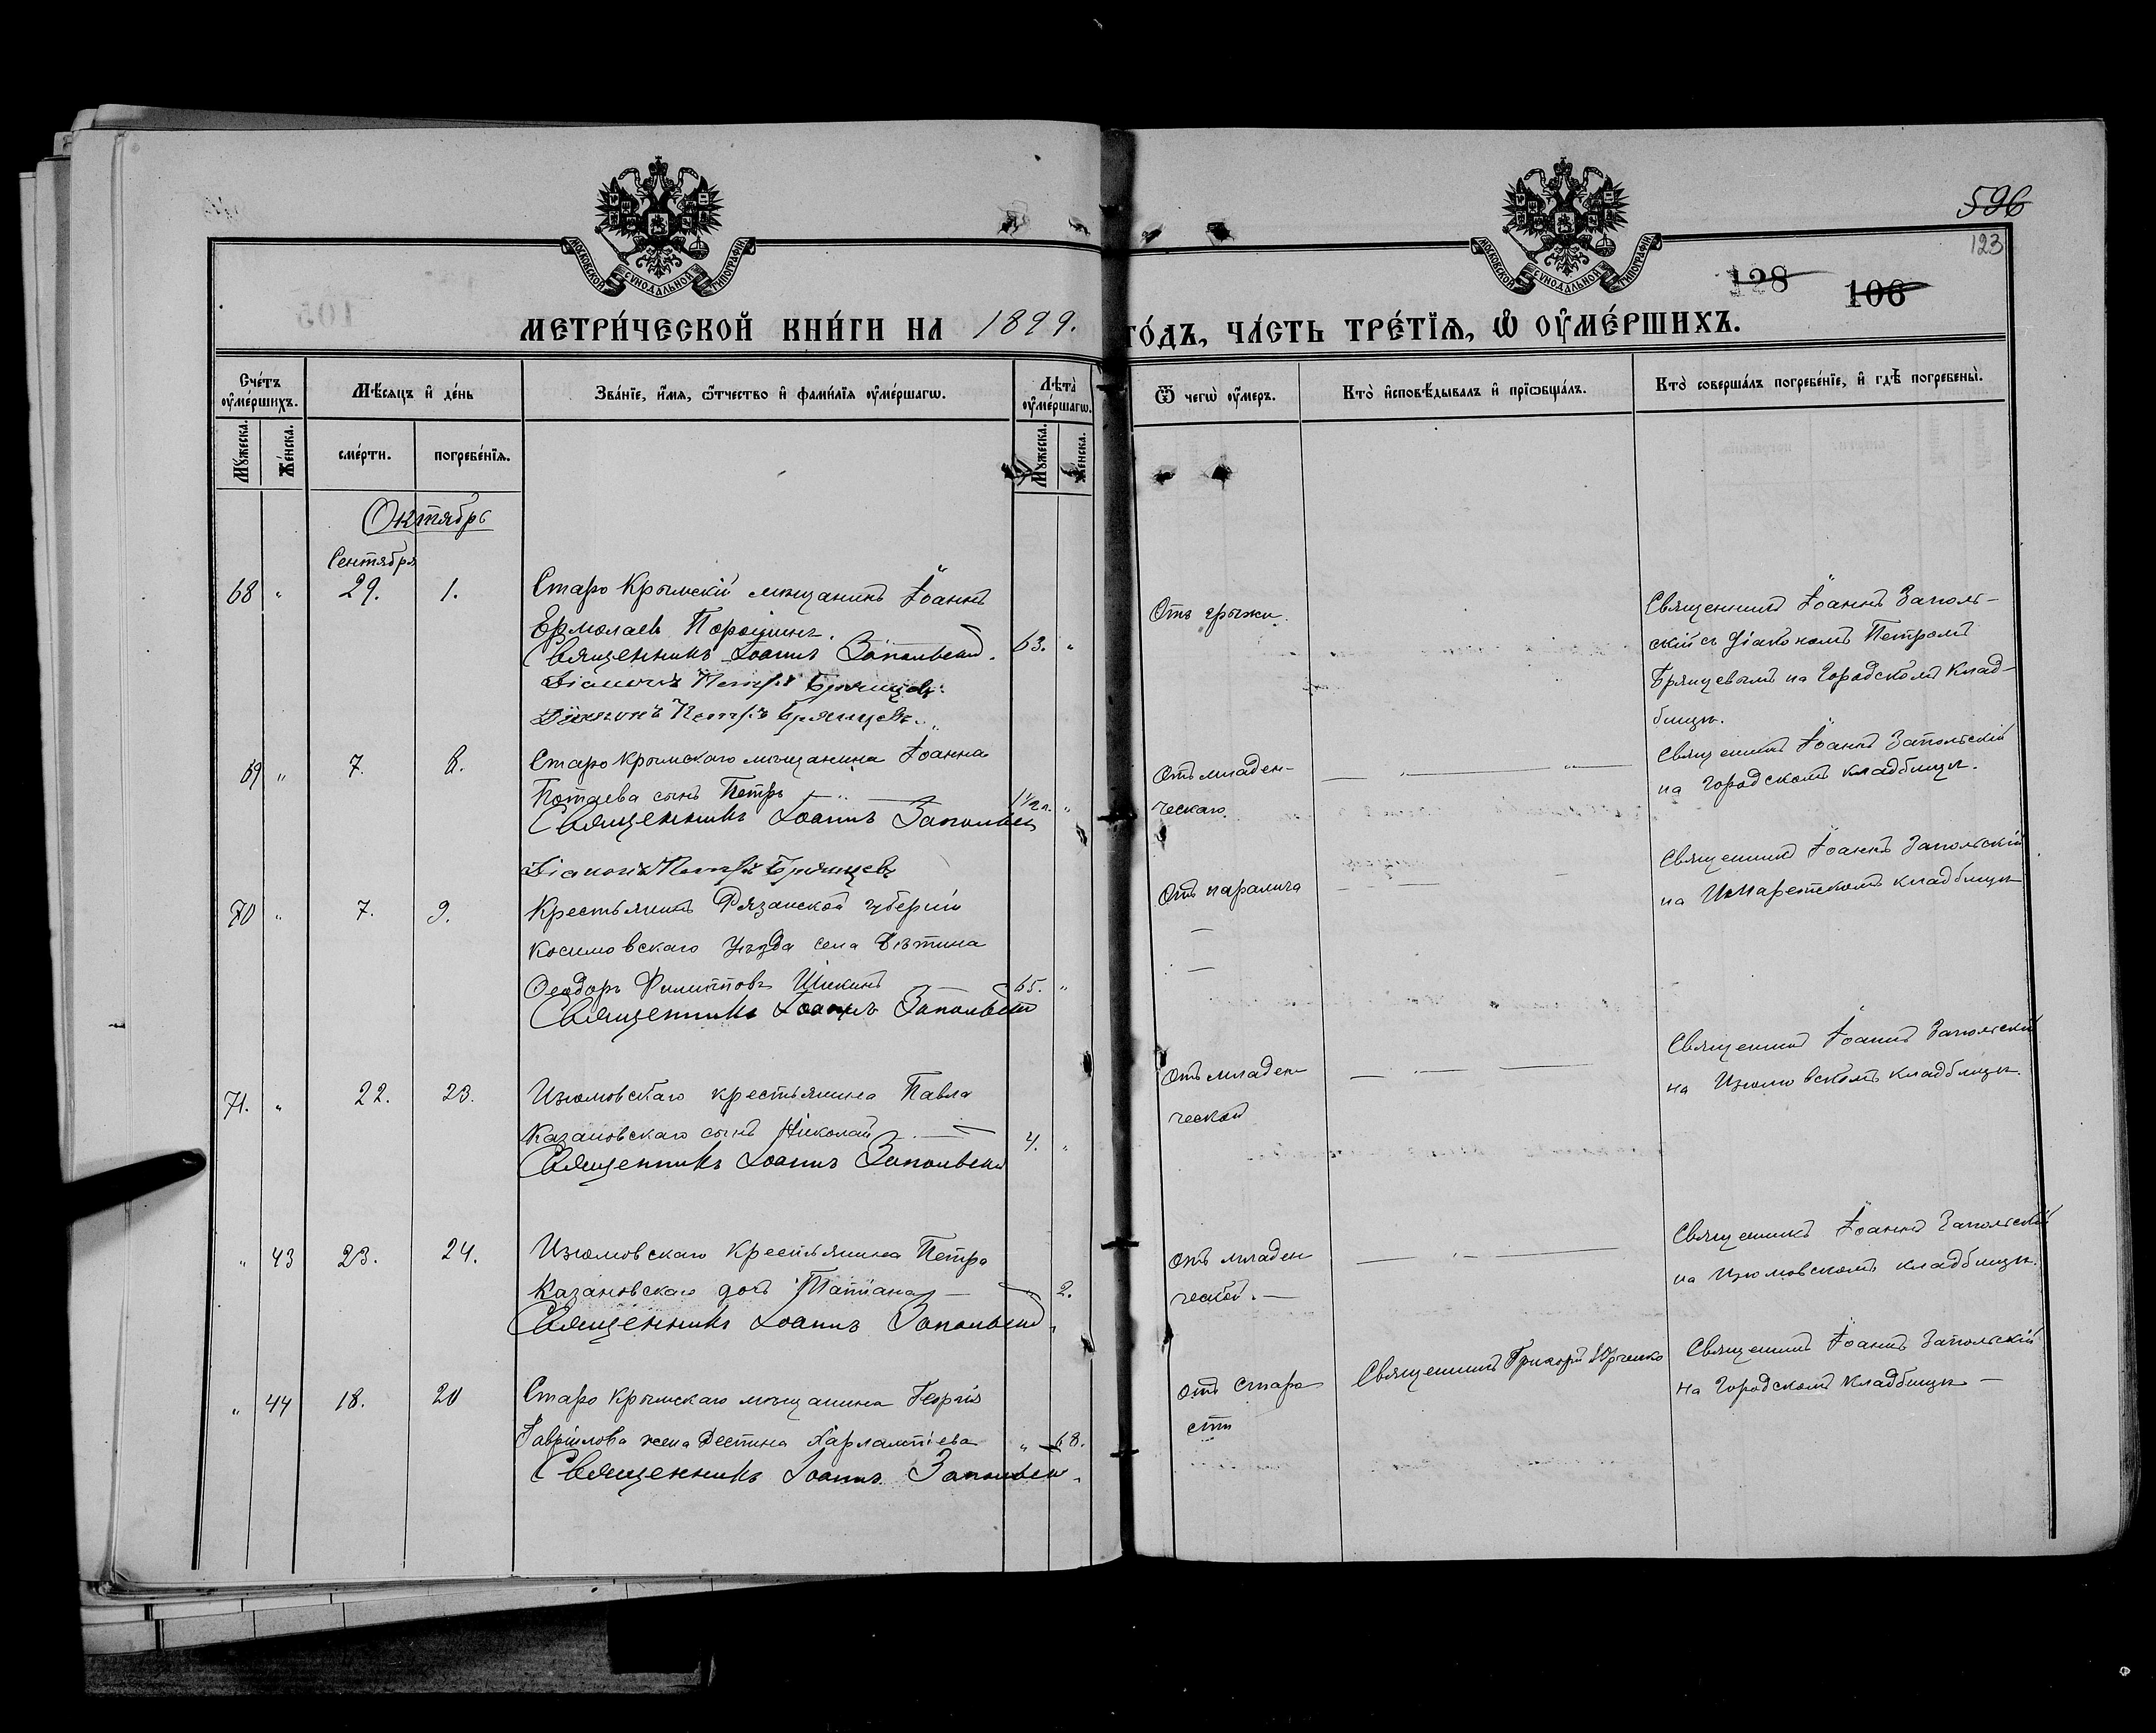 596
123
128 106
МОСКОВСКОЙ СУНОДАЛЬНОЙ ТИПОГРАФІИ
МОСКОВСКОЙ СУНОДАЛЬНОЙ ТИПОГРАФІИ
МЕТРИ́ЧЕСКОЙ КНИ́ГИ НА 1899. ГО́ДЪ, ЧА́СТЬ ТРЕ́ТІѦ, Ѡ҆ ОУ҆МЕ́РШИХЪ.
Сче́тъ оу҆ме́ршихъ.
Мꙋ́жеска.
Же́нска.
Мѣ́сяцъ и҆ де́нь
сме́рти.
погребе́нїѧ.
Зва́нїе, и҆́мѧ, ѻ҆́тчество и҆ фами́лїѧ оу҆ме́ршагѡ.
Лѣ́та оу҆ме́ршагѡ.
Мꙋ́жеска.
Же́нска.
Ѿ чегѡ̀ оу҆́меръ.
Кто̀ и҆сповѣ́дывалъ и҆ прїѡбща́лъ.
Кто̀ соверша́лъ погребе́нїе, и҆ гдѣ̀ погребены̀.
Октябрь
Сентября
68 " 29. 1. Старо Крымскій мѣщанинъ Іоаннъ
Ермолаевъ Порошинъ. 63. "
Священникъ Іоаннъ Запольскій.
Діаконъ Петръ Брянцевъ.
Діаконъ Петръ Брянцевъ.
Отъ грыжи.
Священникъ Іоаннъ Заполь-
скій съ діакономъ Петромъ
Брянцевымъ на Городскомъ Клад-
бищѣ.
69 " 7. 8. Старо Крымскаго мѣщанина Іоанна
сынъ Петръ 1½ г. "
Священникъ Іоаннъ Запольскій
Діаконъ Петръ Брянцевъ
Отъ младен-
ческаго.
Священникъ Іоаннъ Запольскій
на Городскомъ кладбищѣ.
70 " 7. 9. Крестьянинъ Рязанской губерніи
Косимовскаго уѣзда села
Ѳеодоръ Филипповъ 65. "
Священникъ Іоаннъ Запольскій
Отъ паралича
Священникъ Іоаннъ Запольскій
на кладбищѣ
71. " 22. 23. Изюмовскаго крестьянина Павла
Казановскаго сынъ Николай 4. "
Священникъ Іоаннъ Запольскій
Отъ младен
ческой
Священникъ Іоаннъ Запольскій
на Изюмовскомъ кладбищѣ.
" 43 23. 24. Изюмовскаго Крестьянина Петра
Казановскаго дочь Татіана " 2.
Священникъ Іоаннъ Запольскій
Отъ младен
ческой.
Священникъ Іоаннъ Запольскій
на Изюмовскомъ кладбищѣ.
" 44 18. 20 Старо Крымскаго мѣщанина Георгія
Гавріилова жена Деспина Харлампіева " 68.
Священникъ Іоаннъ Запольскій.
Отъ старо
сти
Священникъ Григорій
Священникъ Іоаннъ Запольскій
на Городскомъ Кладбищѣ